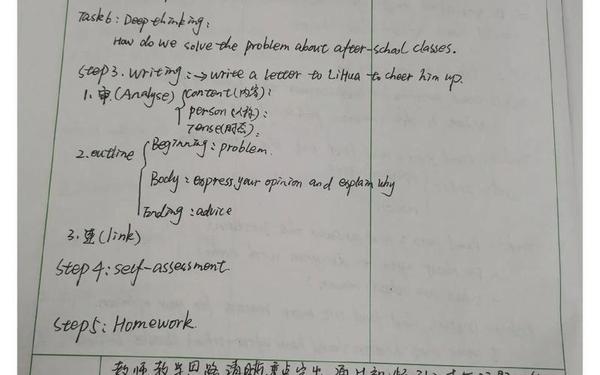 Task6: Deep thinking:
How do we solve the problem about after-school classes.
Step3. Writing: → write a letter to LiHua to cheer him up.
1. 审.(Analyse) { content (内容):
person (人称):
Tense (时态):
2. outline { Beginning: problem.
Body: express your opinion and explain why
Ending: advice
3. (link)
Step4: self-assessment.
Step5: Homework.
教师教学